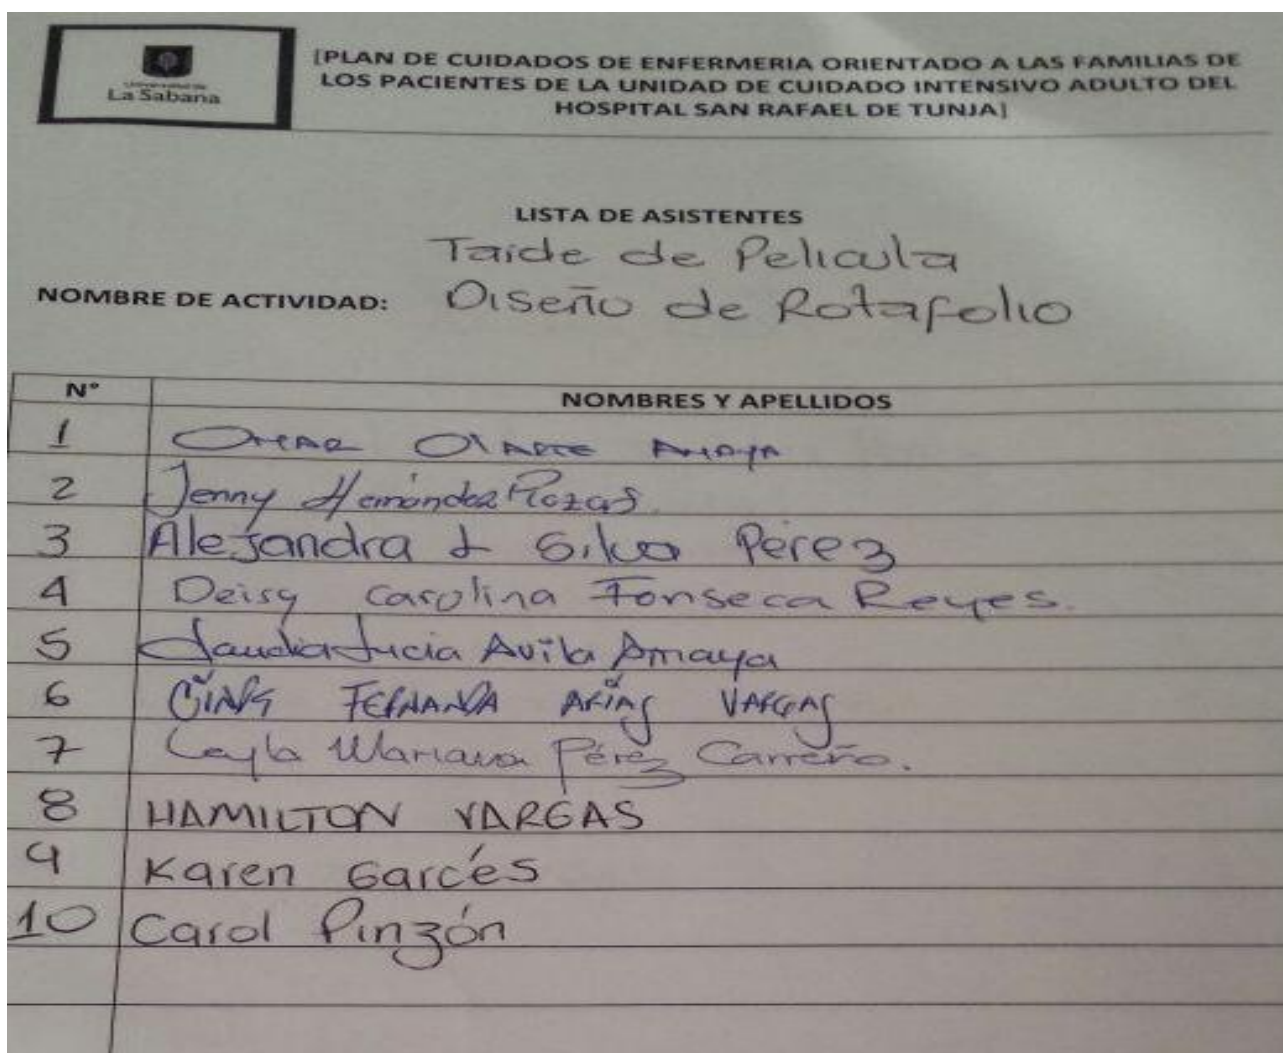 Universidad de
La Sabana
[PLAN DE CUIDADOS DE ENFERMERIA ORIENTADO A LAS FAMILIAS DE
LOS PACIENTES DE LA UNIDAD DE CUIDADO INTENSIVO ADULTO DEL
HOSPITAL SAN RAFAEL DE TUNJA]
LISTA DE ASISTENTES
Tarde de Pelicula
NOMBRE DE ACTIVIDAD: Diseño de Rotafolio
N° NOMBRES Y APELLIDOS
1 OMAR OLARTE AMAYA
2 Jenny Hernández Rozas.
3 Alejandra Silva Pérez
4 Deisy Carolina Fonseca Reyes.
5 Claudia Lucia Avila Amaya
6 FERNANDA ARIAS VARGAS
7 Leyla Mariana Pérez Carreño.
8 HAMILTON VARGAS
9 Karen Garcés
10 Carol Pinzón